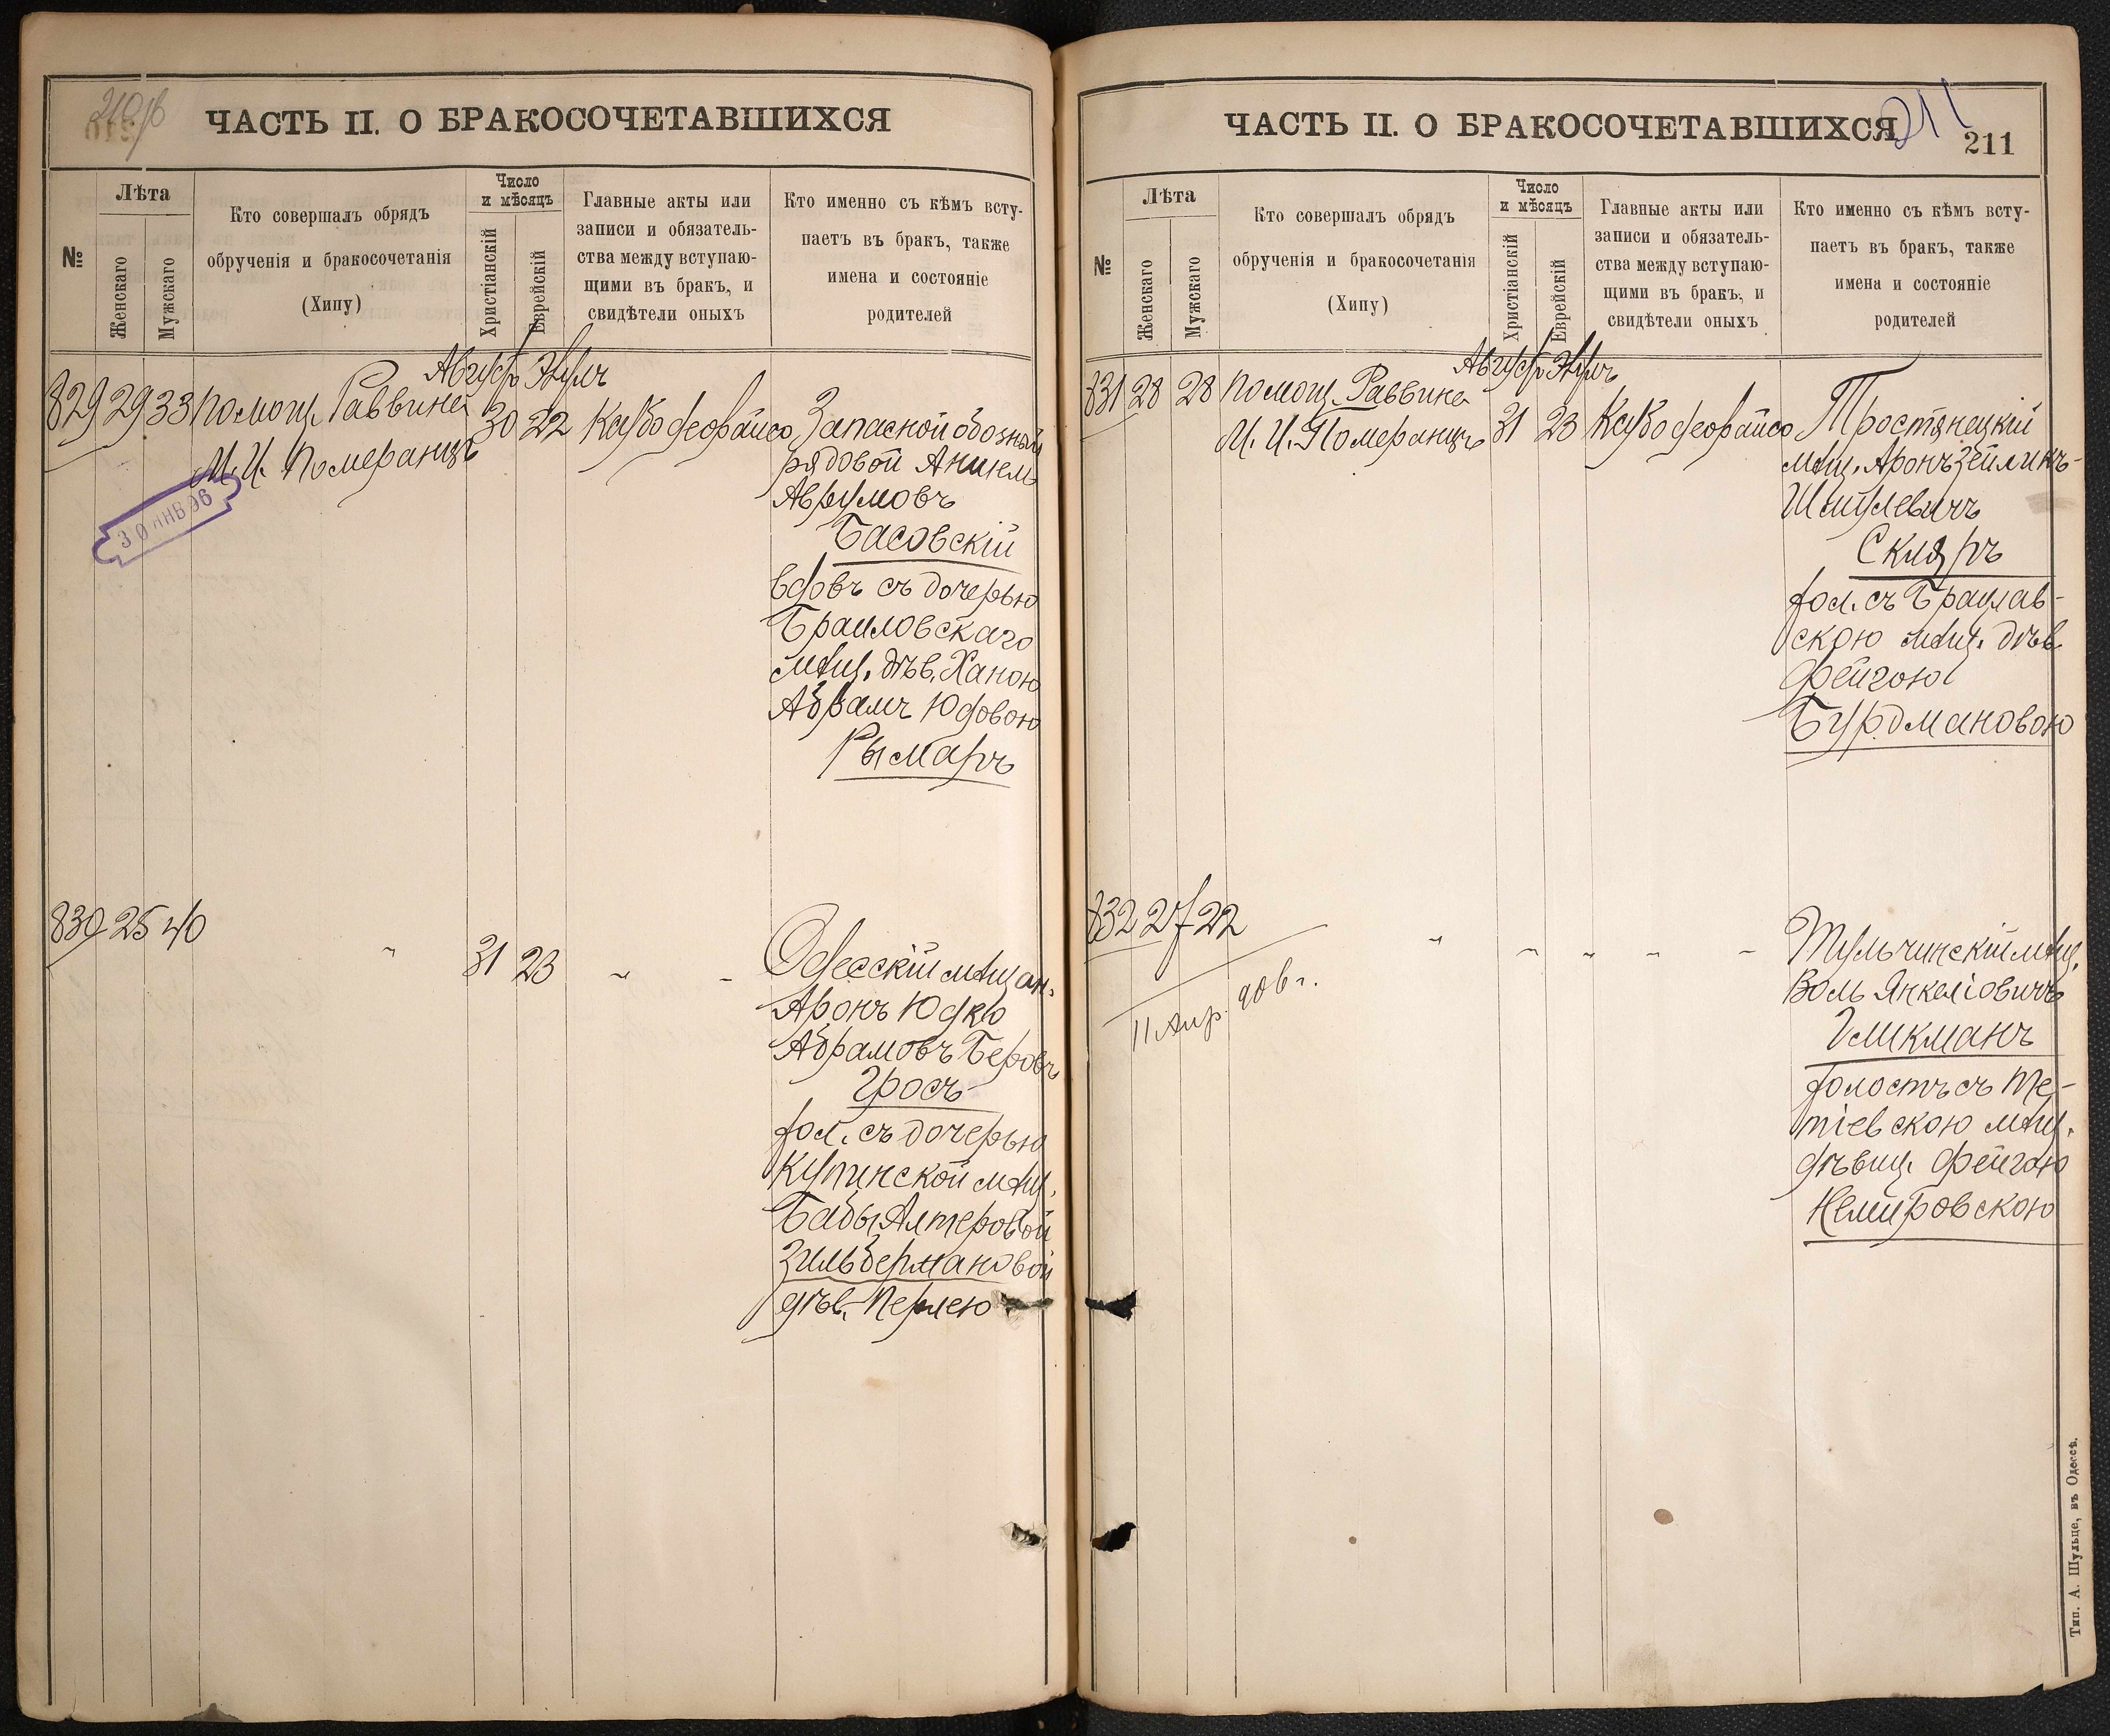 210 об
ЧАСТЬ II. О БРАКОСОЧЕТАВШИХСЯ
№
Лѣта
Женскаго
Мужскаго
Кто совершалъ обрядъ
обрученія и бракосочетанія
(Хипу)
Число
и мѣсяцъ
Христіанскій
Еврейскій
Главные акты или
записи и обязатель-
ства между вступаю-
щими въ бракъ, и
свидѣтели оныхъ
Кто именно съ кѣмъ всту-
паетъ въ бракъ, также
имена и состояніе
родителей
Август Элулъ
829 29 33 Помощ. Раввина 30 22
М. И. Померанцъ
30 ЯНВ 96
Запасной обозный
рядовой
Аврумовъ
Басовскій
вдовъ съ дочерью
Браиловскаго
мѣщ. дѣв. Ханою
Абрамъ Юдовою
Рымаръ
830 25 40 " 31 23 " "
Одесскій мѣщан.
Аронъ Юдко
Абрамовъ Беровъ
Гросъ
хол. съ дочерью
Купинской мѣщ.
Бабы Алтеровой
Зильбермановой
дѣв. Перлею
ЧАСТЬ II. О БРАКОСОЧЕТАВШИХСЯ
211
211
№
Лѣта
Женскаго
Мужскаго
Кто совершалъ обрядъ
обрученія и бракосочетанія
(Хипу)
Число
и мѣсяцъ
Христіанскій
Еврейскій
Главные акты или
записи и обязатель-
ства между вступаю-
щими въ бракъ, и
свидѣтели оныхъ
Кто именно съ кѣмъ всту-
паетъ въ бракъ, также
имена и состояніе
родителей
Август Элулъ
831 28 28 Помощ. Раввина 31 23
М. И. Померанцъ
Тростянецкій
мѣщ. Аронъ Зейлинъ-
Шмулевичъ
Скляръ
хол. съ Брацлав-
скою мѣщ. дѣв.
Фейгою
Бурдмановою
832 27 22 " " " " "
11 Апр. 906 г.
Тульчинскій мѣщ.
Воль Янкеліовичъ
Гликманъ
холостъ съ Те-
тіевскою мѣщ.
дѣвиц. Фейгою
Немировскою
Тип. А. Шульце, въ Одессѣ.